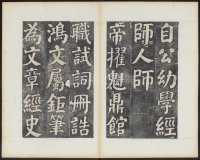 自公幼學經
師人師
帝擢魁鼎館
職試詞冊誥
鴻文屬鉅筆
為文章經史